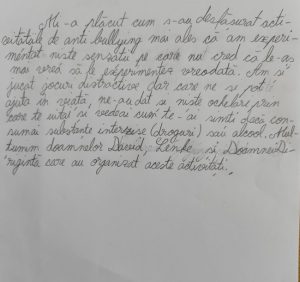 Mi-a plăcut cum s-au desfăsurat acti-
vitatale de anti-bullying mai ales că am experi-
mentat niste senzatii pe care nu cred că le-as
mai vrea să le experimentez vreodată. Am si
jucat jocuri distractive dar care ne se pot
ajuta în veață, ne-au dat si niste ochelari prin
care te uitai si vedeai cum te-ai simti dacă con-
sumai substante interzise (droguri) sau alcool. Mul-
tumim doamnelor Lenke si Doamnei Di-
riginta care au organizat aceste activităti.